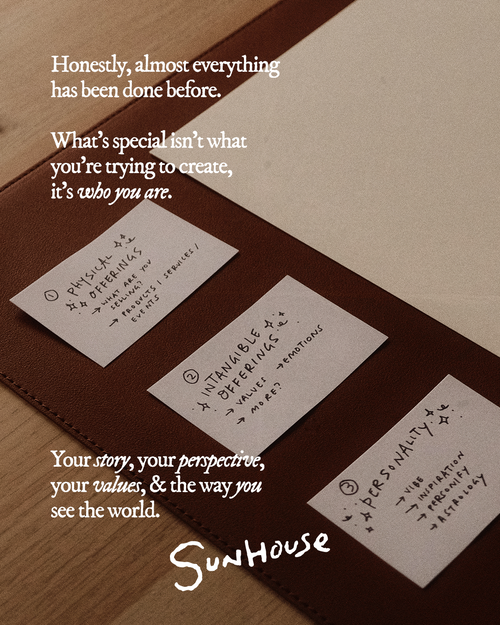 Honestly, almost everything
has been done before.
What's special isn't what
you're trying to create,
it's who you are.
① PHYSICAL
OFFERINGS
→ WHAT ARE YOU
SELLING?
→ PRODUCTS / SERVICES /
EVENTS
② INTANGIBLE
OFFERINGS
→ VALUES → EMOTIONS
→ MORE?
③ PERSONALITY
→ VIBE
→ INSPIRATION
→ PERSONIFY
→ ASTROLOGY
Your story, your perspective,
your values, & the way you
see the world.
SUNHOUSe